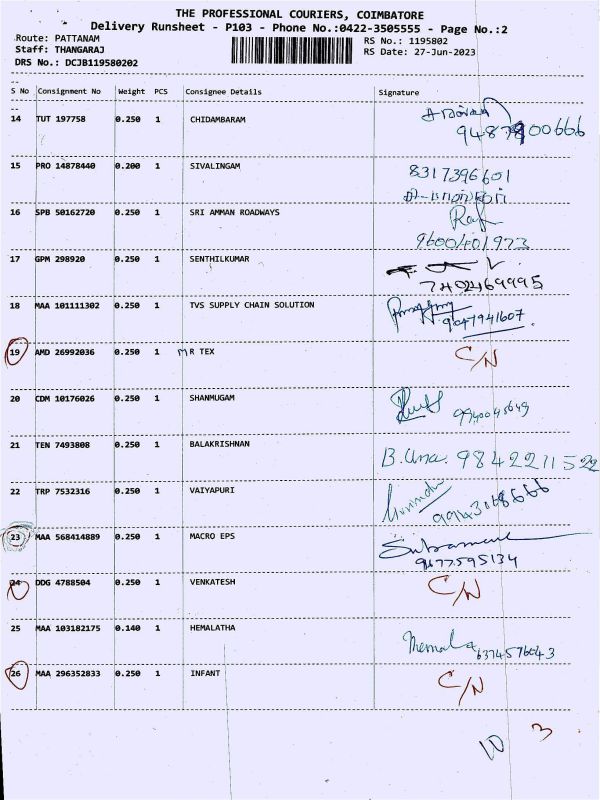 THE PROFESSIONAL COURIERS, COIMBATORE
Delivery Runsheet - P103 - Phone No.:0422-3505555 - Page No.:2
Route: PATTANAM
RS No.: 1195802
Staff: THANGARAJ
RS Date: 27-Jun-2023
DRS No.: DCJB119580202
S No Consignment No Weight PCS Consignee Details Signature
14 TUT 197758 0.250 1 CHIDAMBARAM
15 PRO 14878440 0.200 1 SIVALINGAM 8317396601
16 SPB 50162720 0.250 1 SRI AMMAN ROADWAYS
9600401973
17 GPM 298920 0.250 1 SENTHILKUMAR
7402469995
18 MAA 101111302 0.250 1 TVS SUPPLY CHAIN SOLUTION
9047941607.
19 AMD 26992036 0.250 1 MR TEX C/N
20 CDM 10176026 0.250 1 SHANMUGAM 9940045649
21 TEN 7493808 0.250 1 BALAKRISHNAN
B.Uma. 9842211522
22 TRP 7532316 0.250 1 VAIYAPURI
23 MAA 568414889 0.250 1 MACRO EPS
9677595134
24 DDG 4788504 0.250 1 VENKATESH C/N
25 MAA 103182175 0.140 1 HEMALATHA
Hemala 6374576043
26 MAA 296352833 0.250 1 INFANT C/N
10 3